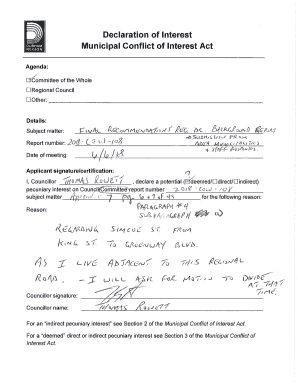 DURHAM
REGION
Declaration of Interest
Municipal Conflict of Interest Act
Agenda:
☐Committee of the Whole
☐Regional Council
☐Other:
Details:
Subject matter: FINAL RECOMMENDATIONS REG DC BACKGROUND
Report number: 2018-COW-108 + SUBMISSION FROM
AREA MUNICIPALITIES
Date of meeting: 6/6/18 +
Applicant signature/certification:
I, Councillor THOMAS ROWETT, declare a potential (deemed/direct/indirect)
pecuniary interest on Council/Committee report number 2018-COW-108
subject matter 7 pg 6+7 of 44 for the following reason:
Reason: PARAGRAPH #4
SUBPARAGRAPH
REGARDING SIMCOE ST FROM
KING ST TO GREENWAY BLVD.
AS I LIVE ADJACENT TO THIS REGIONAL
ROAD. - I WILL ASK FOR MOTION TO DIVIDE
AT THAT
TIME.
Councillor signature:
Councillor name: THOMAS ROWETT
For an "indirect pecuniary interest" see Section 2 of the Municipal Conflict of Interest Act.
For a "deemed" direct or indirect pecuniary interest see Section 3 of the Municipal Conflict of
Interest Act.